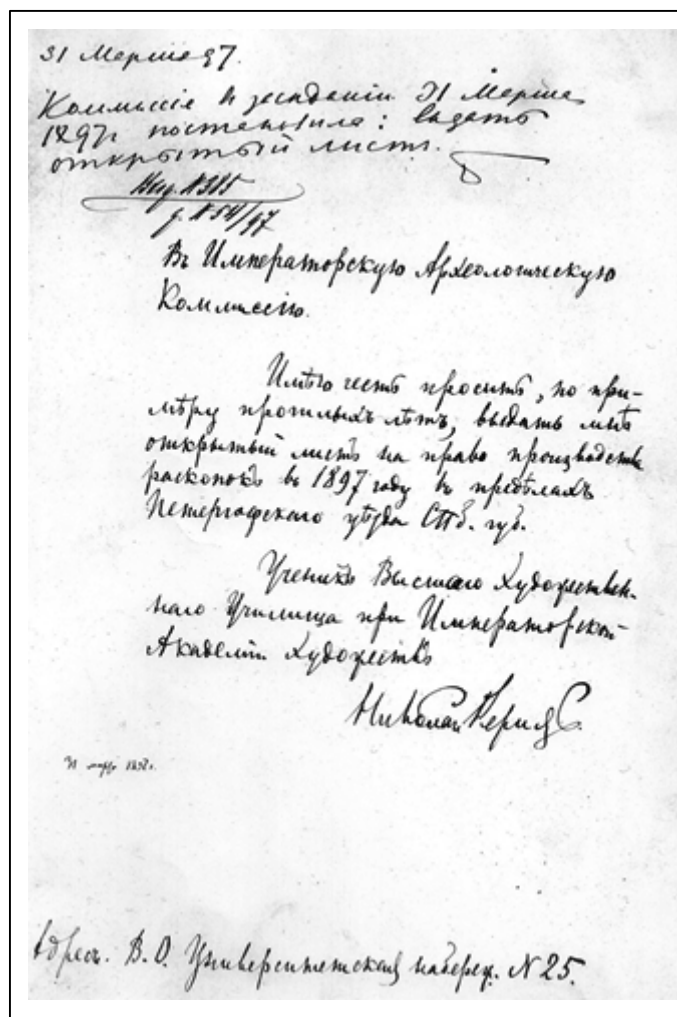 31 Марта 97.
Коммиссія въ засѣданіи 31 Марта
1897г. постановила: выдать
открытый листъ.
№ 315
д. № 54/97
Въ Императорскую Археологическую
Коммиссію.
Имѣю честь просить, по при-
мѣру прошлыхъ лѣтъ, выдать мнѣ
открытый листъ на право производства
раскопокъ въ 1897 году въ предѣлахъ
Петергофскаго уѣзда СПб. губ.
Ученикъ Высшаго Художествен-
наго Училища при Императорской
Академіи Художествъ
Николай Рерихъ.
31 марта 1897г.
Адресъ. В.О. Университетская набереж. № 25.